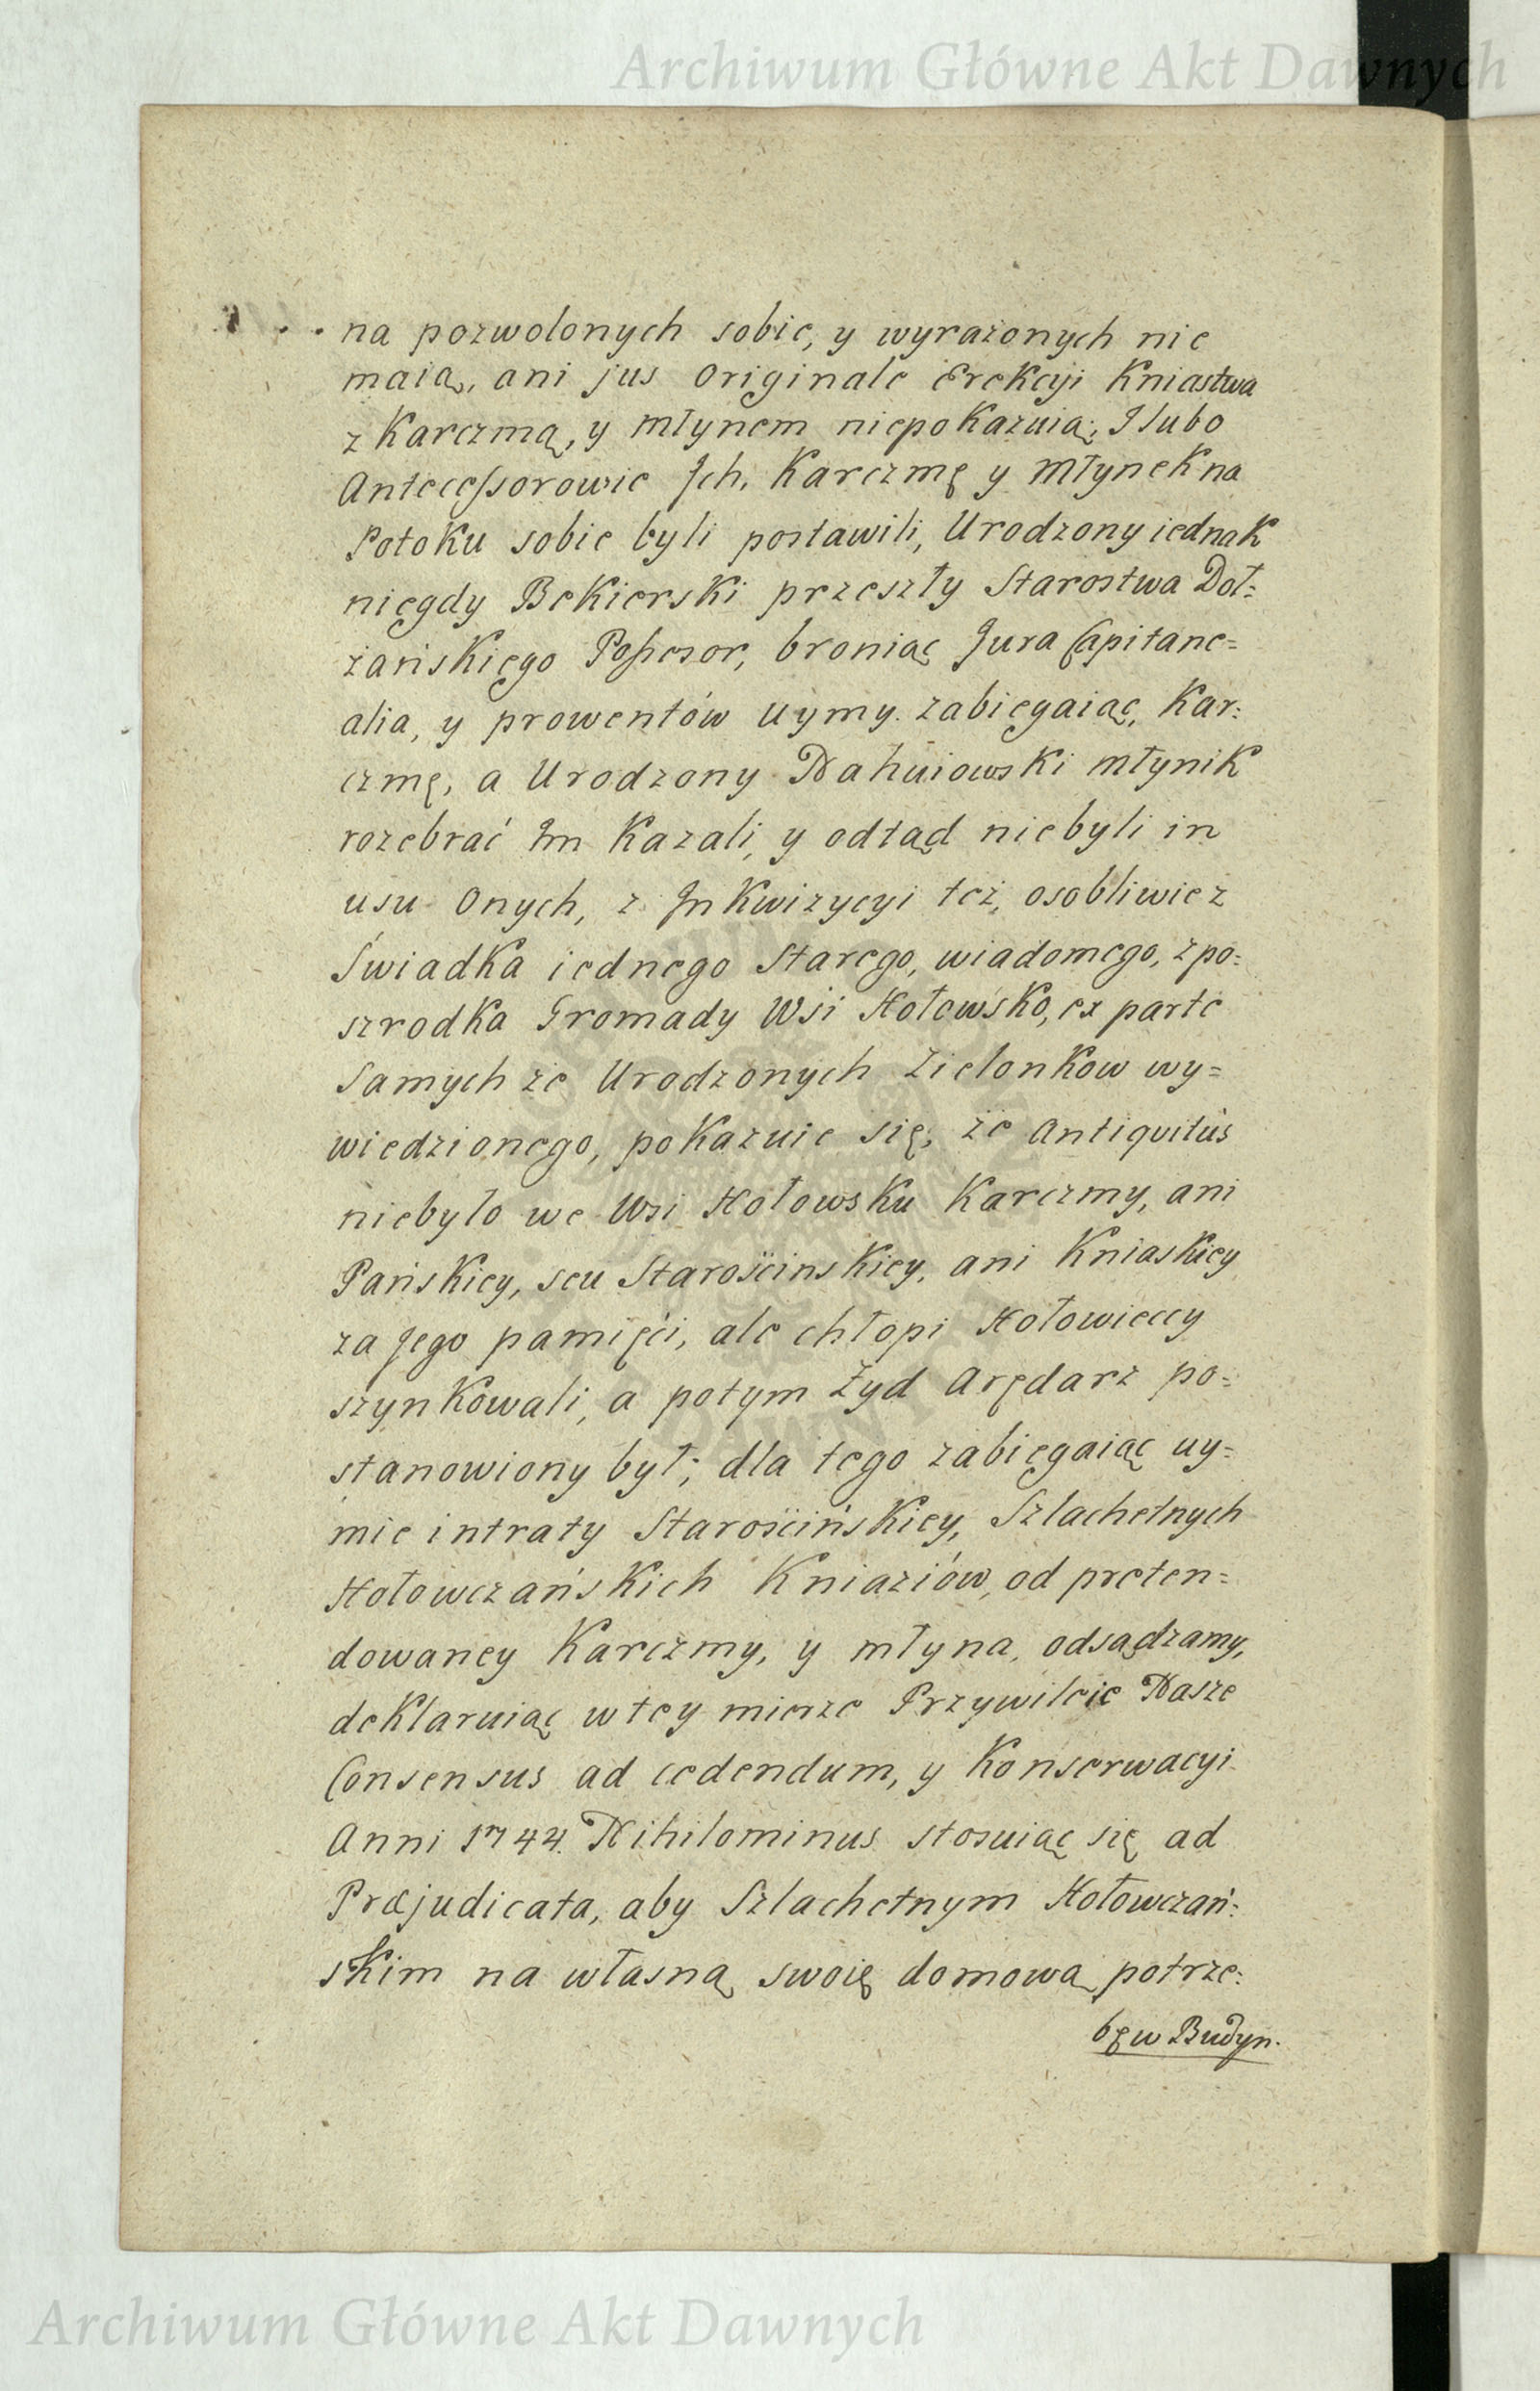 Archiwum Główne Akt Dawnych
na pozwolonych sobie, y wyrażonych nie
maią, ani jus Originale Erekcyi Kniastwa
z Karczmą, y Młynem niepokazuią; I lubo
Antecessorowie Ich, Karczmę y Młynek na
Potoku sobie byli postawili, Urodzony iednak
niegdy Bekierski przeszły Starostwa Doł=
żańskiego Possesor, broniąc Jura Capitane=
alia, y prowentów uymy zabiegaiąc, Kar=
czmę, a Urodzony Nahuiowski młynik
rozebrać Im Kazali, y odtąd niebyli in
usu Onych, z Inkwizycyi też, osobliwie z
Świadka iednego Starego, wiadomego, zpo=
szrodka Gromady Wsi Hołowsko, ex parte
Samych że Urodzonych Zielonkow wy=
wiedzionego, pokazuie się, że Antiquitùs
niebyło we Wsi Hołowsku Karczmy, ani
Pańskiey, seu Starościnskiey, ani Kniaskiey
za Jego pamięći, ale chłopi Hołowieccy
szynkowali, a potym Żyd Arędarz po=
stanowiony był; dla tego zabiegaiąc uy=
mie intraty Starościńskiey, Szlachetnych
Hołowczańskich Kniaziów, od preten=
dowaney Karczmy, y młyna, odsądzamy,
deklaruiąc w tey mierze Przywileie Nasze
Consensus ad cedendum, y Konserwacyi
Anni 1744. Nihilominus stosuiąc się ad
Præjudicata, aby Szlachetnym Hołowczań=
skim na własną swoię domową potrze=
bę w Budyn.
Archiwum Główne Akt Dawnych